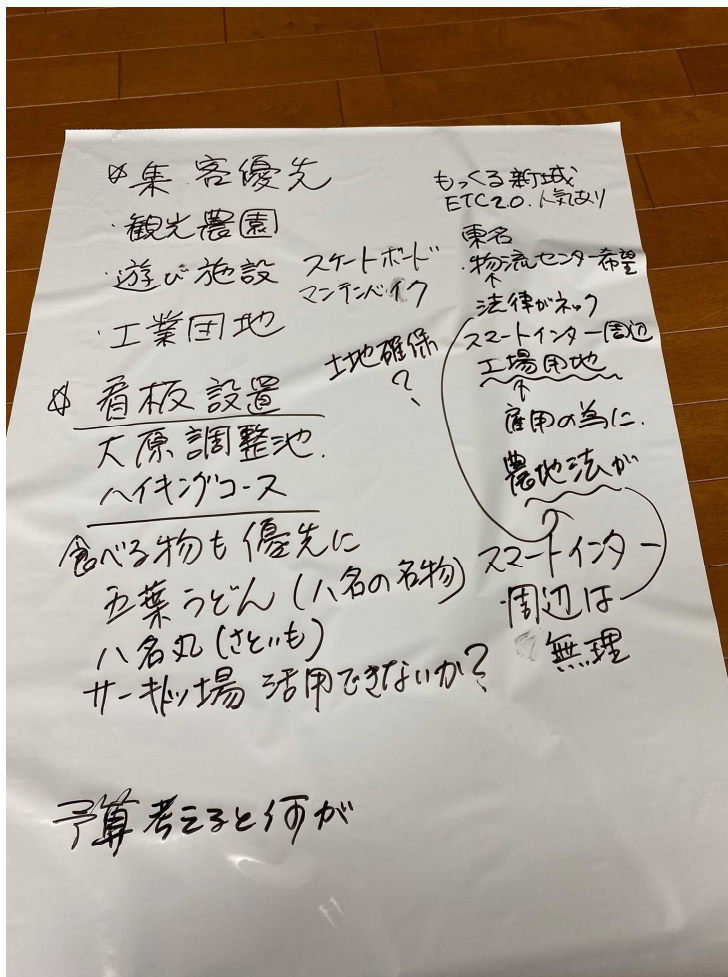 ☆集客優先
・観光農園
・遊び施設
スケートボード
マンテンバイク
・工業団地
土地確保
?
☆看板設置
大原調整池.
ハイキングコース
食べる物も優先に
五葉うどん(八名の名物)
八名丸(さといも)
サーキット場 活用できないか?
予算考えると何が
もっくる新城
ETC2.0.人気あり
東名
・物流センター希望
↑
法律がネック
スマートインター周辺
工場用地
↑
雇用の為に.
農地法が
スマートインター
周辺は
無理